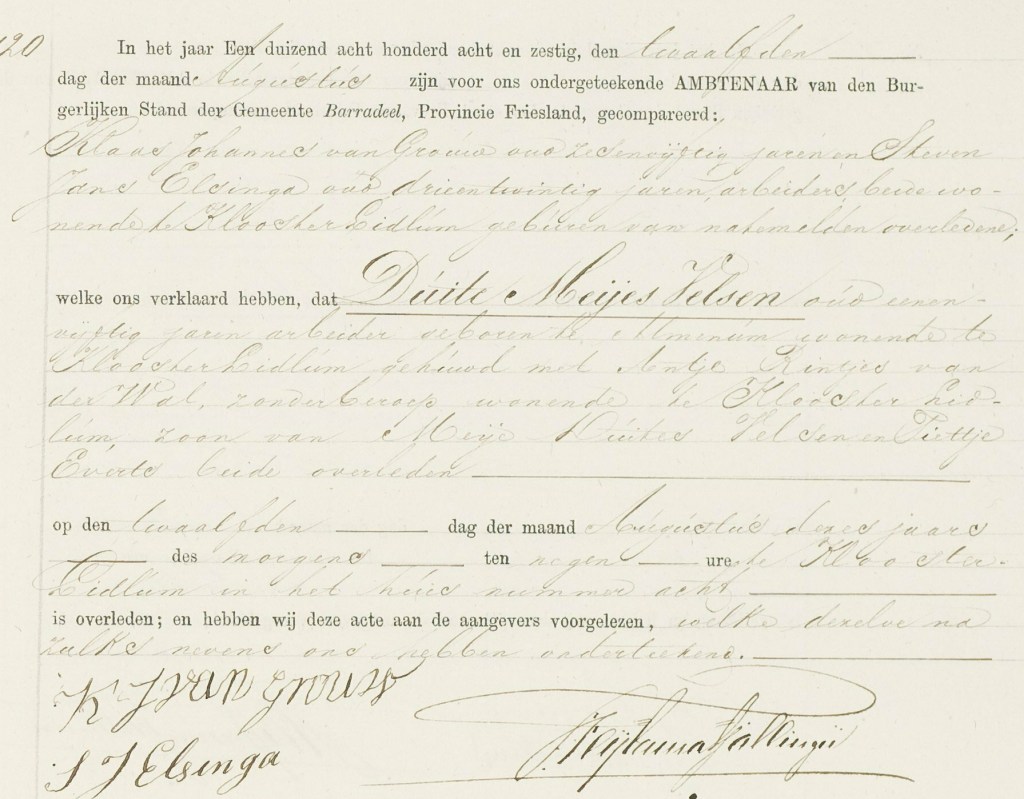 120
In het jaar Een duizend acht honderd acht en zestig, den twaalfden
dag der maand Augustus zijn voor ons ondergeteekende AMBTENAAR van den Bur-
gerlijken Stand der Gemeente Barradeel, Provincie Friesland, gecompareerd:
Klaas Johannes van Grouw oud zesenvijftig jaren en Steven
Jans Elsinga oud drieentwintig jaren, arbeiders, beide wo-
nende te Klooster Lidlum geburen van natemelden overledene;
welke ons verklaard hebben, dat Duite Meijes Velsen oud eenen-
vijftig jaren arbeider geboren te Almenum wonende te
Klooster Lidlum gehuwd met Antje Rintjes van
der Wal, zonder beroep wonende te Klooster Lid-
lum, zoon van Meije Duites Velsen en Piettje
Everts beide overleden
op den twaalfden dag der maand Augustus dezes jaars
des morgens ten negen ure te Klooster-
Lidlum in het huis nummer acht
is overleden; en hebben wij deze acte aan de aangevers voorgelezen, welke dezelve na
zulks nevens ons hebben onderteekend.
K J van Grouw
S J Elsinga